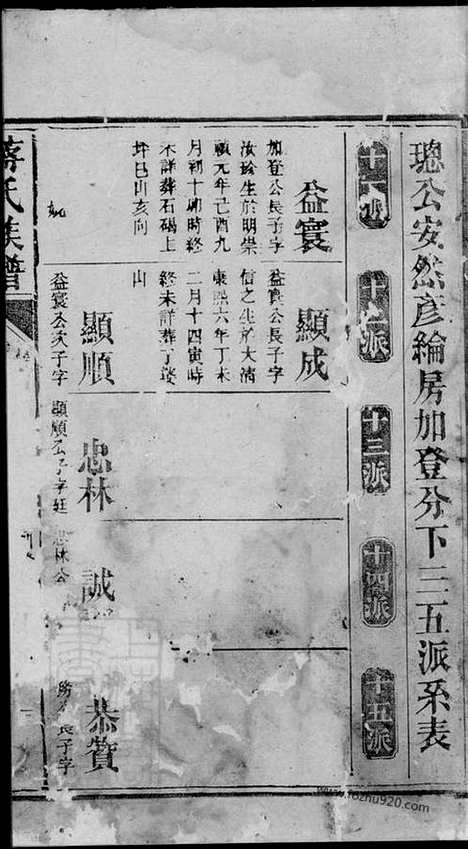 璁公安然彥綸房加登分下三五派系表
十三派
十四派
十五派
益寰
加登公長子字
汝珍生於明崇
禎元年己酉九
月初十卯時終
不詳葬石碣上
坪巳山亥向
顯成
益寰公長子字
信之生於大清
康熙六年丁未
二月十四寅時
終未詳葬丁婆
山
顯順
益寰公次子字
忠林
顯順公子字廷
誠
忠林公
恭贊
長子字
蔣氏族譜
www.fozhu920.com